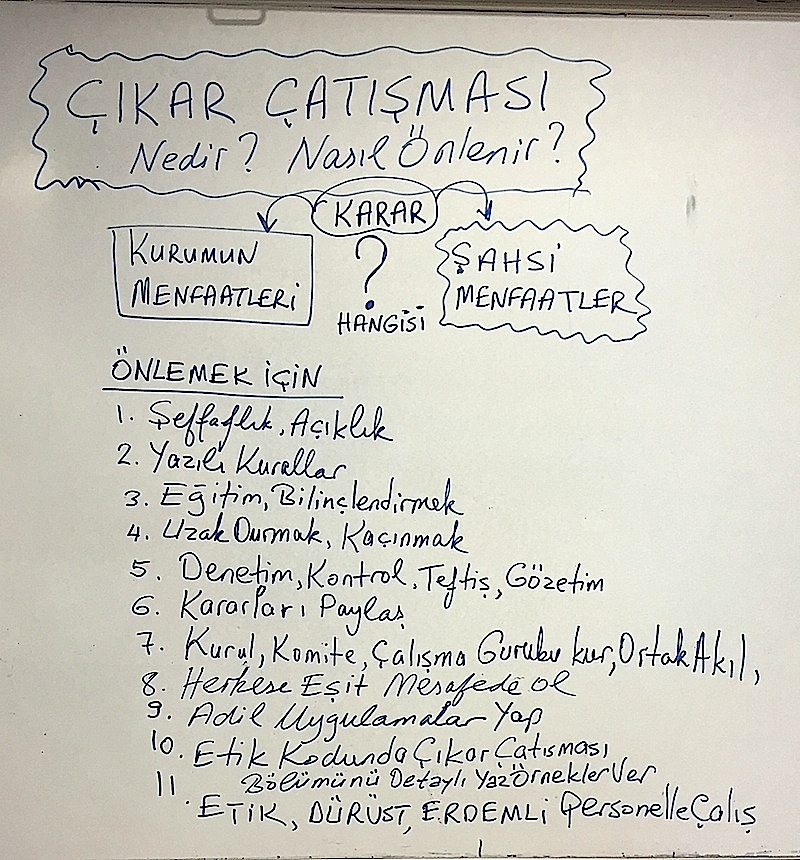 ÇIKAR ÇATIŞMASI
Nedir? Nasıl Önlenir?
KARAR
KURUMUN
MENFAATLERİ
?
HANGİSİ
ŞAHSİ
MENFAATLER
ÖNLEMEK İÇİN
1. Şeffaflık, Açıklık
2. Yazılı Kurallar
3. Eğitim, Bilinçlendirmek
4. Uzak Durmak, Kaçınmak
5. Denetim, Kontrol, Teftiş, Gözetim
6. Kararları Paylaş
7. Kurul, Komite, Çalışma Gurubu kur, Ortak Akıl,
8. Herkese Eşit Mesafede ol
9. Adil Uygulamalar Yap
10. Etik Kodunda Çıkar Çatışması
Bölümünü Detaylı Yaz Örnekler Ver
11. ETİK, DÜRÜST, ERDEMLİ Personelle Çalış